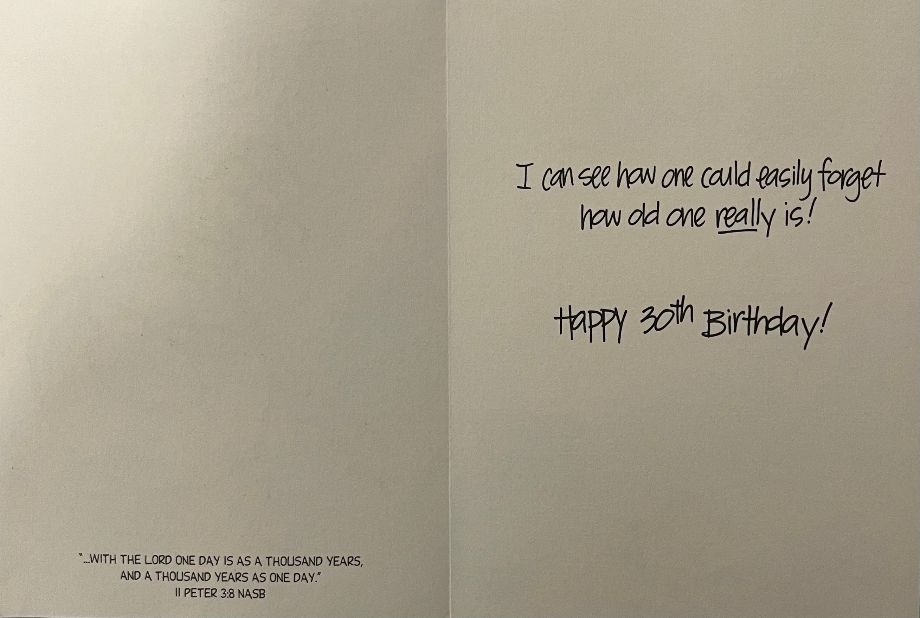 "...WITH THE LORD ONE DAY IS AS A THOUSAND YEARS,
AND A THOUSAND YEARS AS ONE DAY."
II PETER 3:8 NASB
I can see how one could easily forget
how old one really is!
Happy 30th Birthday!